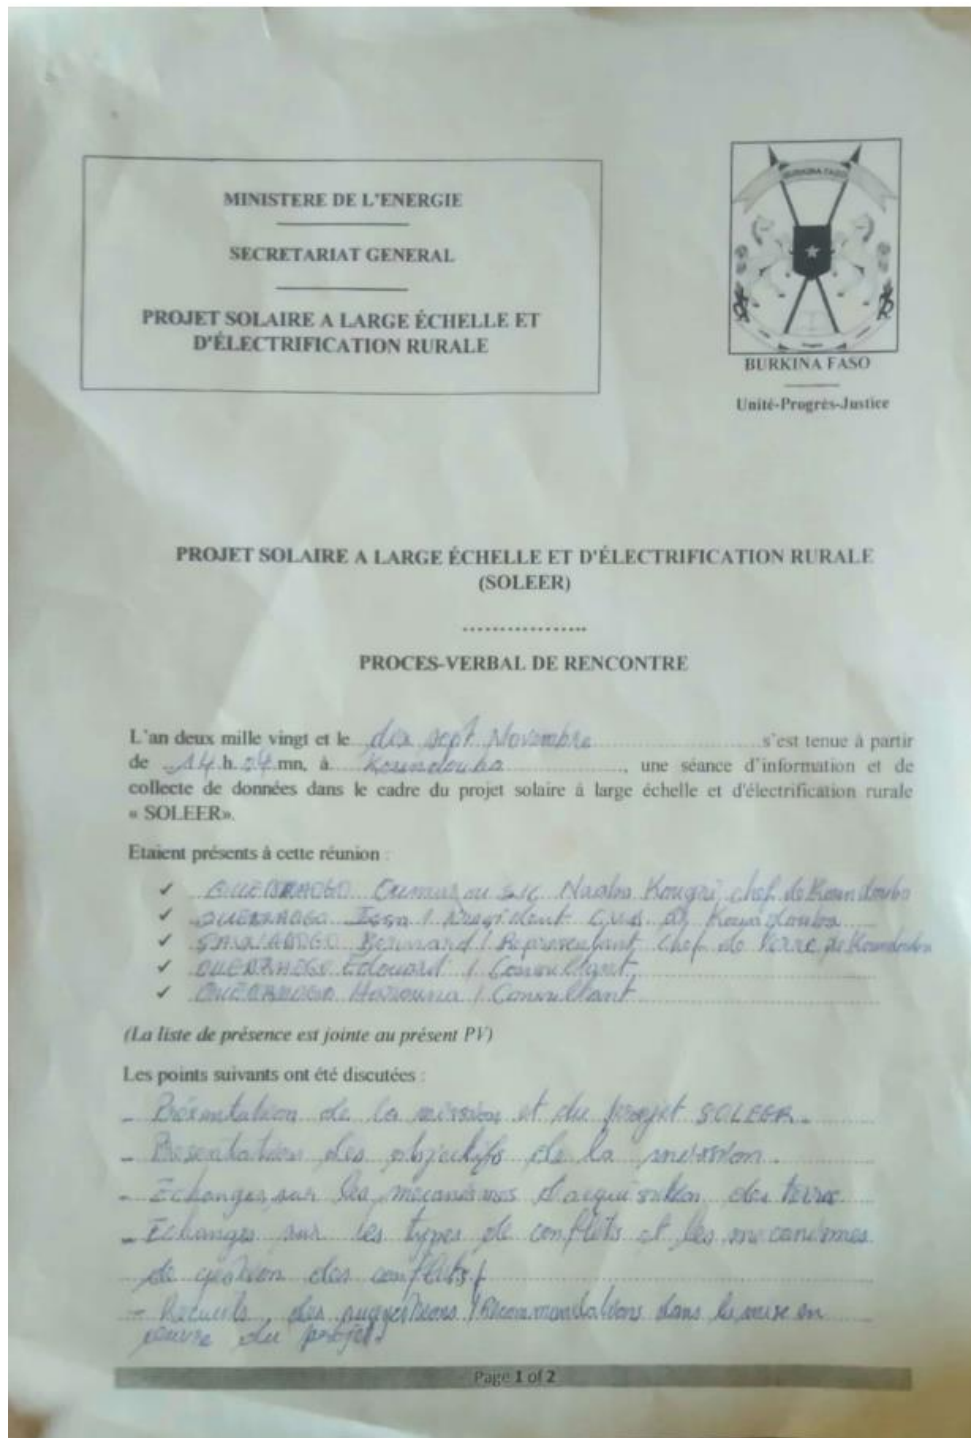 MINISTERE DE L'ENERGIE
SECRETARIAT GENERAL
PROJET SOLAIRE A LARGE ÉCHELLE ET
D'ÉLECTRIFICATION RURALE
BURKINA FASO
BURKINA FASO
Unité-Progrès-Justice
PROJET SOLAIRE A LARGE ÉCHELLE ET D'ÉLECTRIFICATION RURALE
(SOLEER)
.................
PROCES-VERBAL DE RENCONTRE
L'an deux mille vingt et le dix sept Novembre s'est tenue à partir
de 14 h. 04 mn, à Koundouba, une séance d'information et de
collecte de données dans le cadre du projet solaire à large échelle et d'électrification rurale
« SOLEER».
Etaient présents à cette réunion :
✓ OUEDRAOGO Oumarou S/C Naaba Kougri, chef de Koundouba
✓ OUEDRAOGO Issa / President CVD de Koundouba
✓ SAWADOGO Bernard / Representant chef de terre de Koundouba
✓ OUEDRAOGO Edouard / Consultant
✓ OUEDRAOGO Harouna / Consultant
(La liste de présence est jointe au présent PV)
Les points suivants ont été discutées :
- Présentation de la mission et du projet SOLEER.
- Presentation des objectifs de la mission.
- Echanges sur les mecanismes d'acquisition des terres
- Echanges sur les types de conflits et les mecanismes
de gestion des conflits
- Recueils des suggestions / Recommandations dans la mise en
oeuvre du projet
Page 1 of 2